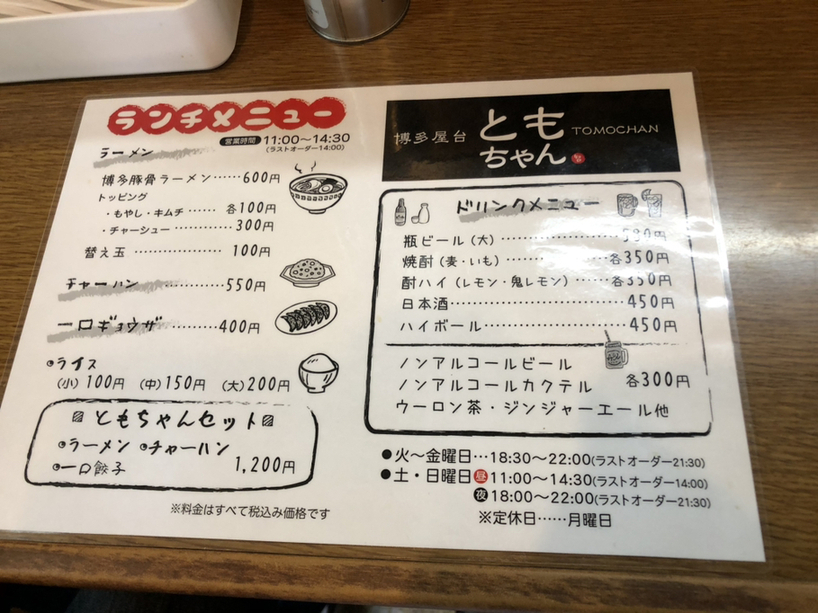 ランチメニュー
営業時間 11:00〜14:30
(ラストオーダー14:00)
ラーメン
博多豚骨ラーメン……600円
トッピング
・もやし・キムチ……各100円
・チャーシュー……………300円
替え玉……………100円
チャーハン……………550円
一口ギョウザ…………400円
ライス
(小)100円 (中)150円 (大)200円
ともちゃんセット
ラーメン チャーハン
一口餃子 1,200円
※料金はすべて税込み価格です
博多屋台 ともちゃん TOMOCHAN
ドリンクメニュー
瓶ビール(大)……………
焼酎(麦・いも)……………各350円
酎ハイ(レモン・鬼レモン)……各350円
日本酒……………450円
ハイボール……………450円
ノンアルコールビール
ノンアルコールカクテル 各300円
ウーロン茶・ジンジャーエール他
●火〜金曜日…18:30〜22:00(ラストオーダー21:30)
●土・日曜日 昼 11:00〜14:30(ラストオーダー14:00)
夜 18:00〜22:00(ラストオーダー21:30)
※定休日……月曜日